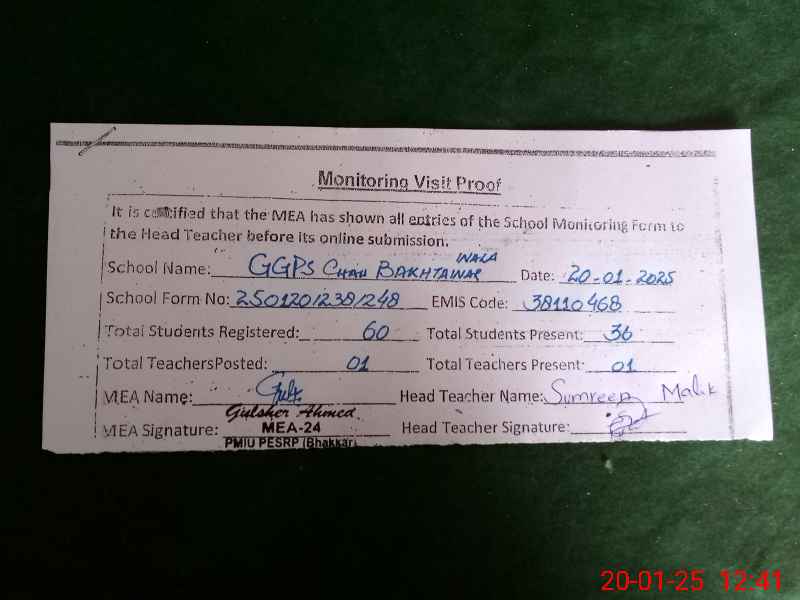 Monitoring Visit Proof
It is certified that the MEA has shown all entries of the School Monitoring Form to
the Head Teacher before its online submission.
School Name: GGPS Chah Bakhtawar Wala Date: 20-01-2025
School Form No: 25012012381248 EMIS Code: 38110468
Total Students Registered: 60 Total Students Present: 36
Total TeachersPosted: 01 Total Teachers Present: 01
MEA Name: Head Teacher Name: Sumreen Malik
Gulsher Ahmed
MEA Signature: MEA-24 Head Teacher Signature:
PMIU PESRP (Bhakkar)
20-01-25 12:41